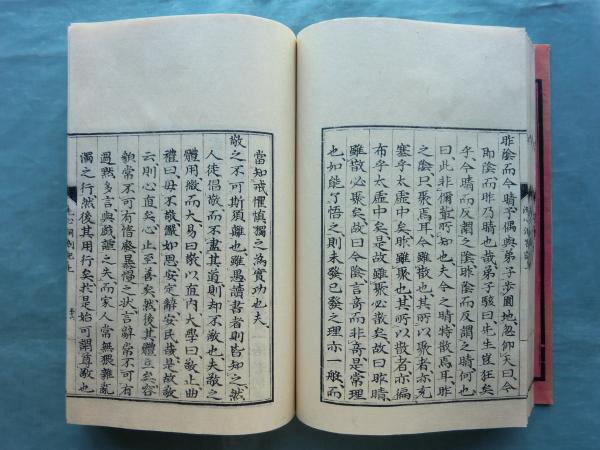 昨陰而今晴予偶與弟子歩園地忽仰天曰今
即陰而昨乃晴也哉弟子駭曰先生豈狂矣
乎今晴而反謂之陰昨陰而反謂之晴何也
曰此非爾輩所知也夫今之晴特散焉耳昨
之陰只聚焉耳今雖散也其所以聚者亦充
塞乎太虚中矣昨雖聚也其所以散者亦徧
布乎太虚中矣是故雖聚必散矣故曰昨晴
雖散必聚矣故曰今陰言奇而非奇是常理
也如能了悟之則未發已發之理亦一般而
當知戒懼慎獨之爲實功也夫
敬之不可斯須離也雖愚讀書者則皆知之然
人徒倡敬而不盡其道則却不敬也夫敬之
體用繳而大易曰敬以直内大學曰敬止曲
禮曰毋不敬儼如思安定辭安民哉是故敬
云則心直矣心止至善矣然後其體立矣容
貌常不可有惰發暴慢之状言辭常不可有
過黙多言與戲謔之失而家人常無猥雜亂
濁之行然後其用行矣於是始可謂尊敬也